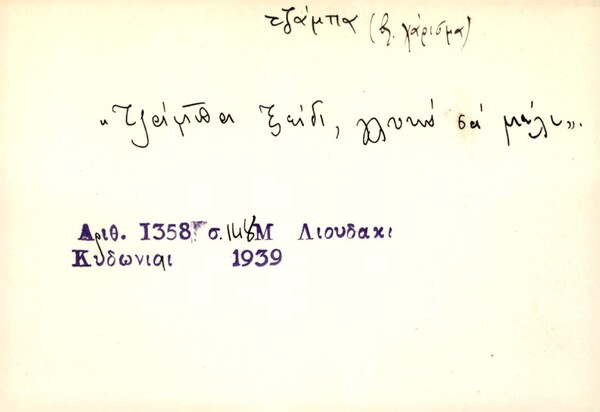 τζάμπα (βλ. χάρισμα)
«Τζάμπα ξείδι, γλυκό σά μέλι».
Αριθ. 1358 σ. 148 Μ Λιουδακι
Κυδωνιαι 1939